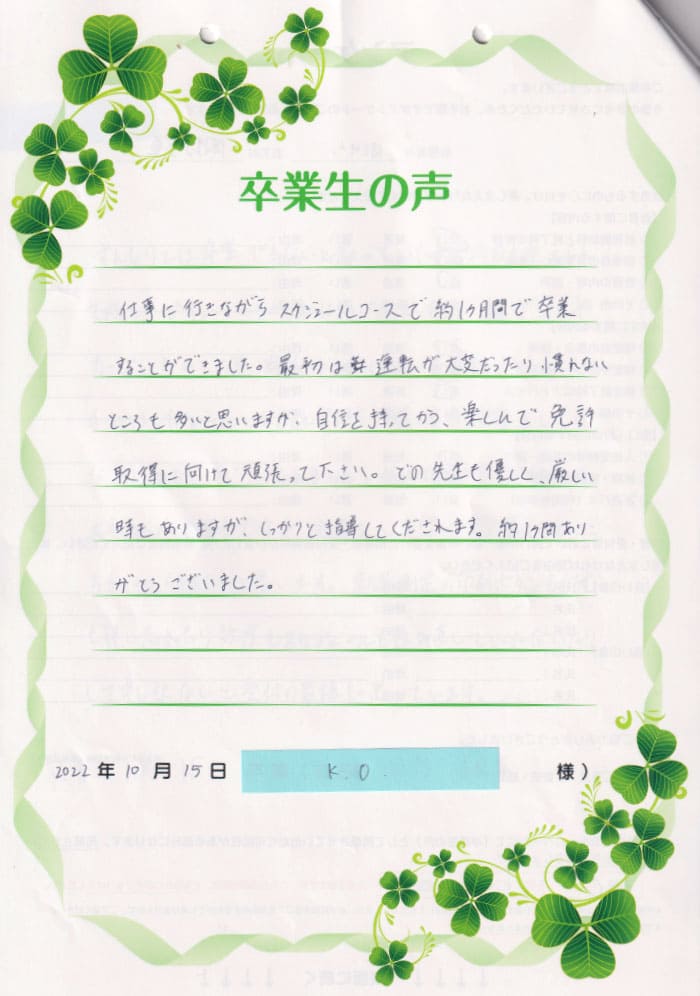 卒業生の声
仕事に行きながら スケジュールコースで 約1ヶ月間で 卒業
することができました。最初は 運転が 大変だったり 慣れない
ところも 多いと思いますが、自信を持ってから、楽しんで 免許
取得に向けて 頑張って下さい。どの先生も優しく、厳しい
時もありますが、しっかりと指導してくだされます。約1ヶ間あり
がとうございました。
2022年10月15日 K.O. 様)